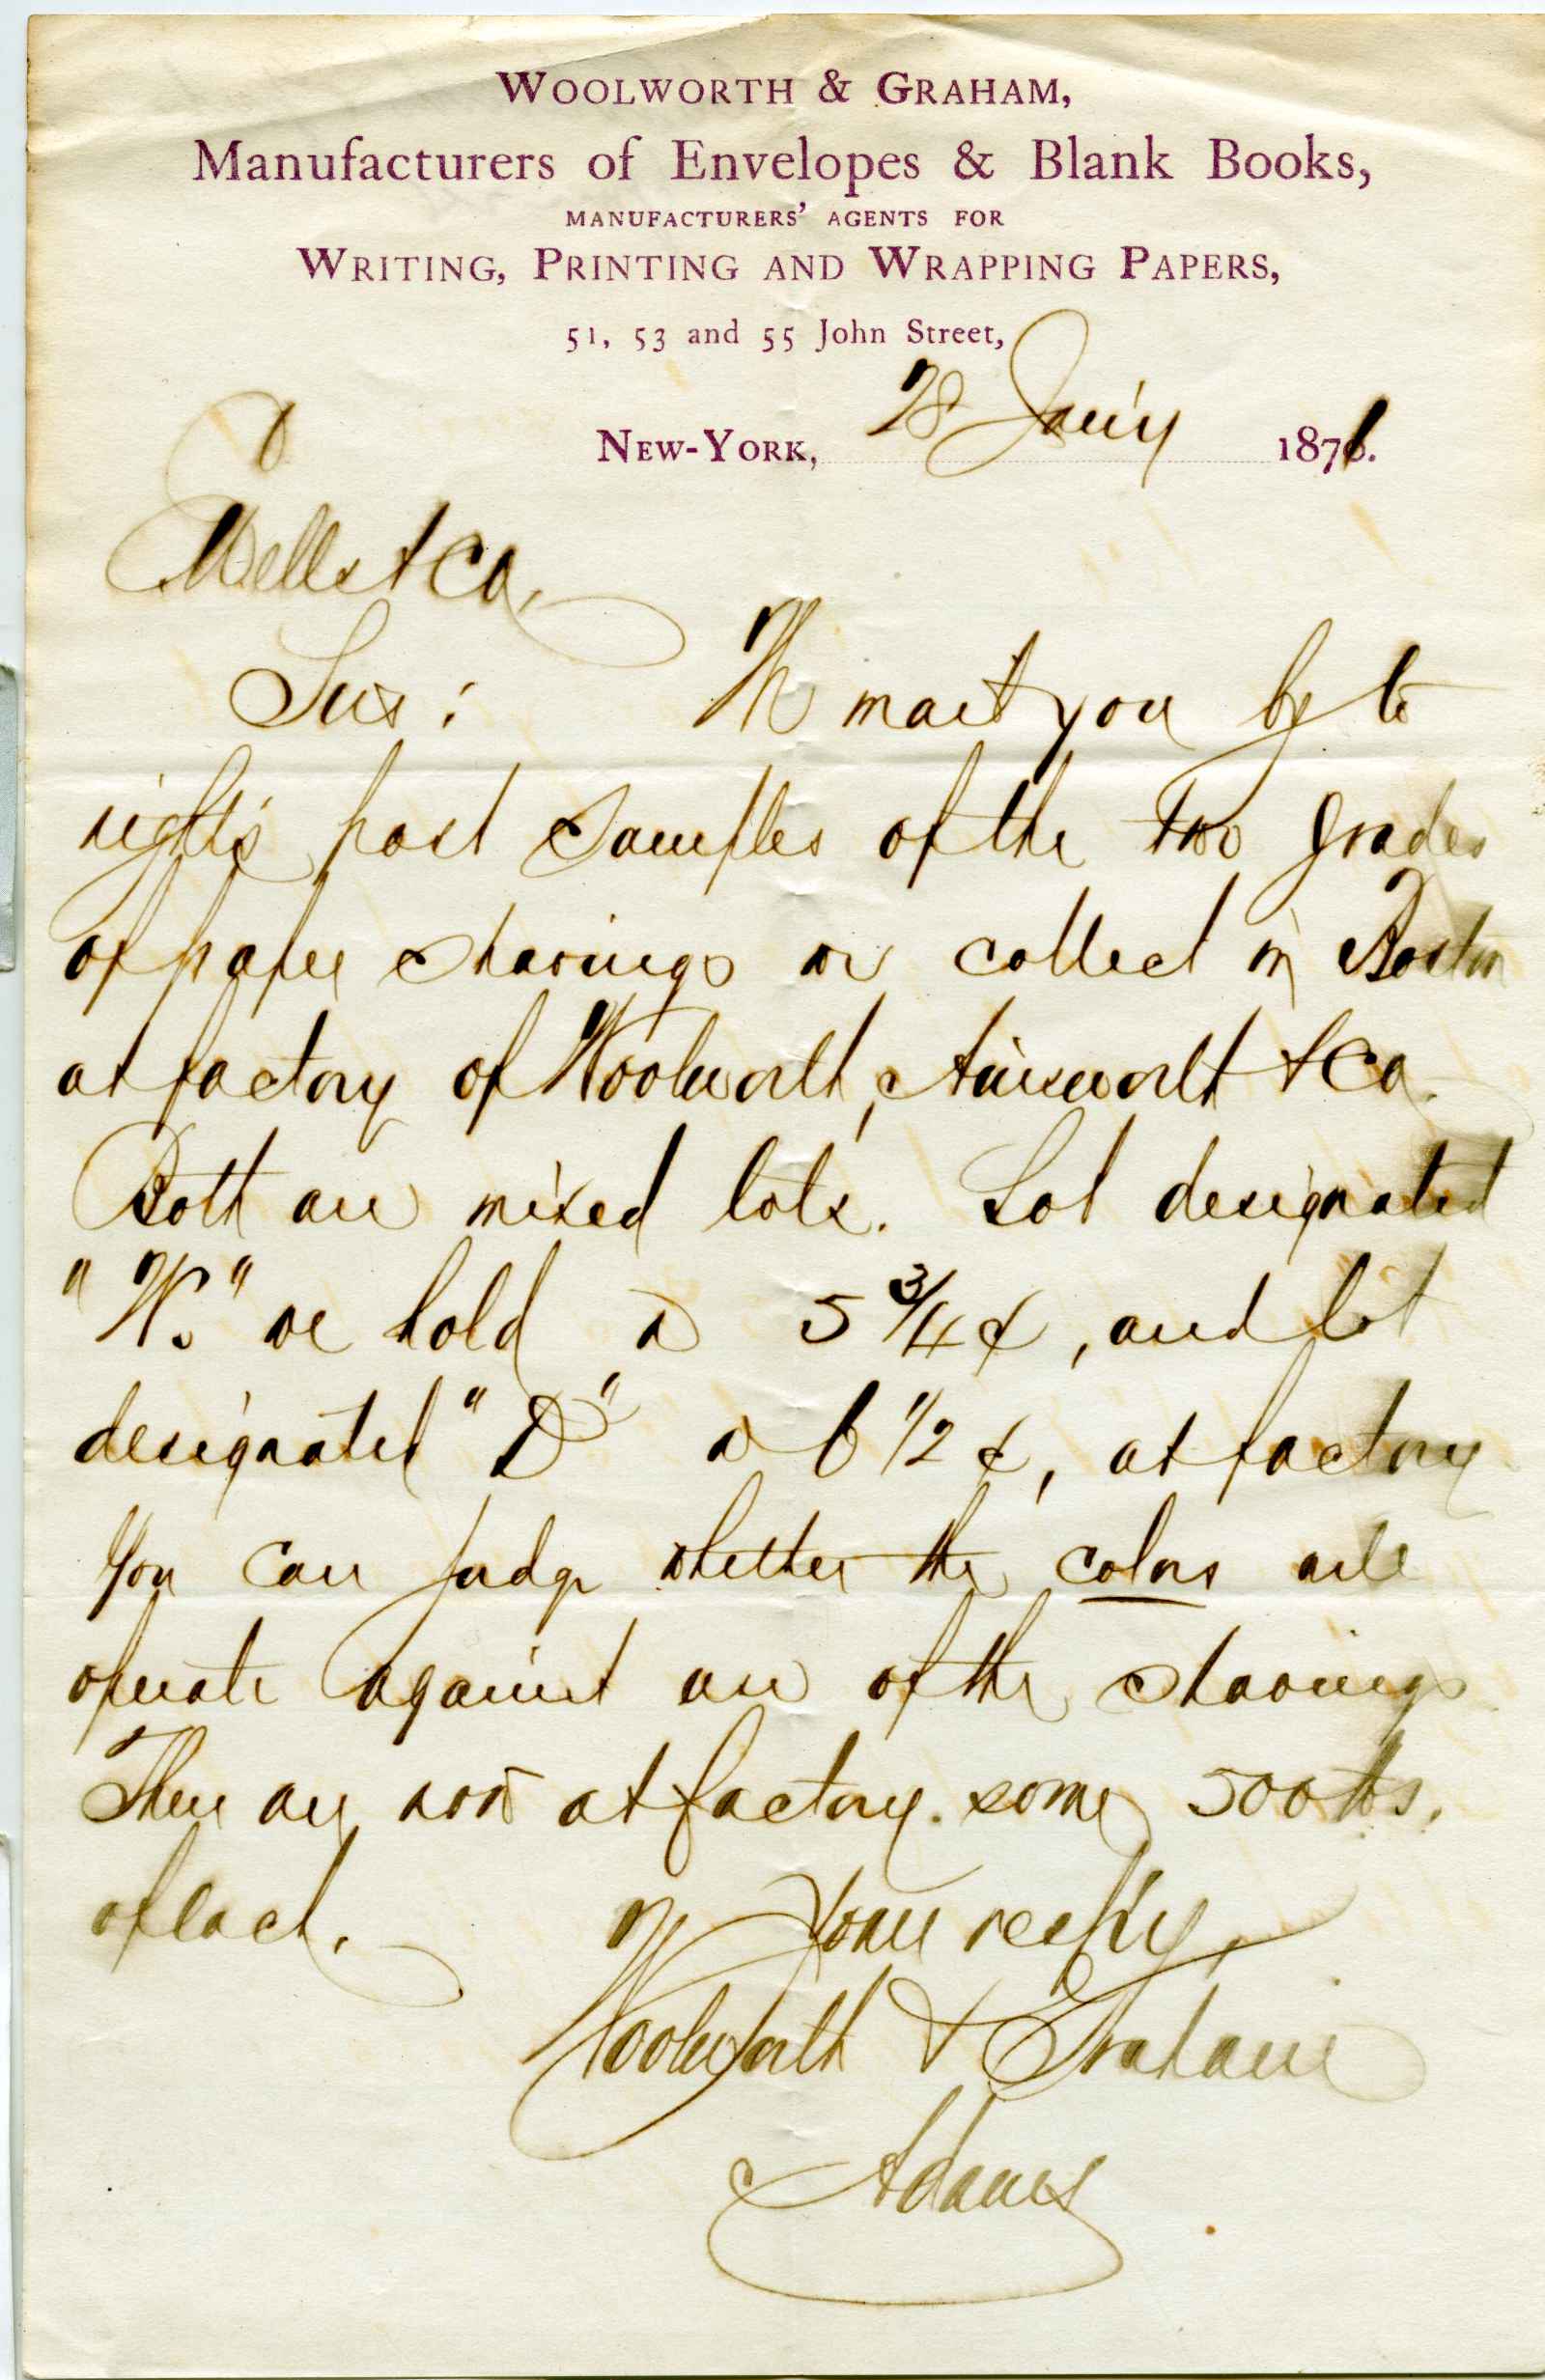 WOOLWORTH & GRAHAM,
Manufacturers of Envelopes & Blank Books,
MANUFACTURERS' AGENTS FOR
WRITING, PRINTING AND WRAPPING PAPERS,
51, 53 and 55 John Street,
NEW-YORK, 28 Jan'y 1871.
Wells & Co,
Sirs: We mail you by to
night's post samples of the two grades
of paper shavings we collect in Boston
at factory of Woolworth, Ainsworth & Co.
Both are mixed lots. Lot designated
"W." we hold @ 5 3/4 ¢, and lot
designated "D" @ 6 1/2 ¢, at factory
You can judge whether the colors will
operate against use of the shavings
There are now at factory some 500 lbs.
of each.
Yours resp'y,
Woolworth & Graham
Adams